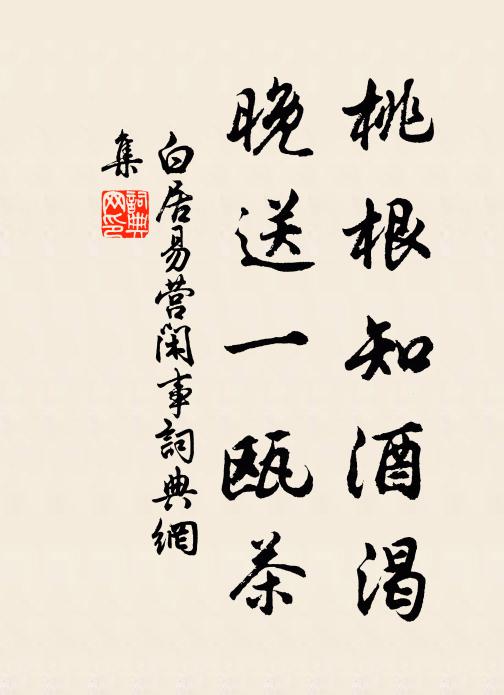 桃根知酒渴
晚送一甌茶
白居易营閑事詞典網
集
詞典
网印